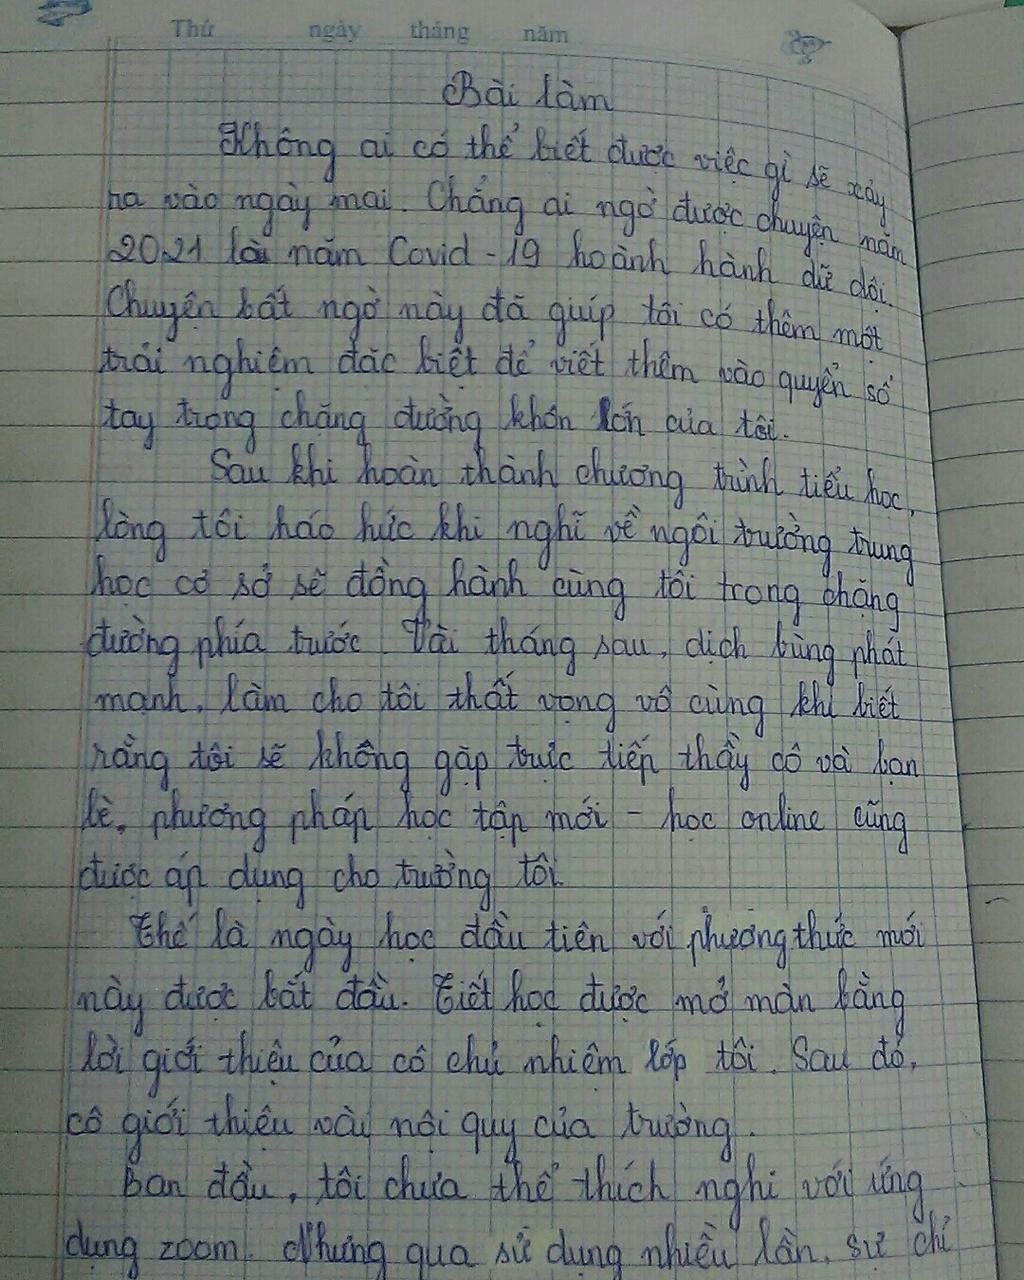 Thứ ngày tháng năm
Bài làm
Không ai có thể biết được việc gì sẽ xảy
ra vào ngày mai. Chẳng ai ngờ được chuyện năm
2021 là năm Covid-19 hoành hành dữ dội.
Chuyện bất ngờ này đã giúp tôi có thêm một
trải nghiệm đặc biệt để viết thêm vào quyển sổ
tay trong chặng đường khôn lớn của tôi.
Sau khi hoàn thành chương trình tiểu học,
lòng tôi háo hức khi nghĩ về ngôi trường trung
học cơ sở sẽ đồng hành cùng tôi trong chặng
đường phía trước. Vài tháng sau, dịch bùng phát
mạnh, làm cho tôi thất vọng vô cùng khi biết
rằng tôi sẽ không gặp trực tiếp thầy cô và bạn
bè, phương pháp học tập mới - học online cũng
được áp dụng cho trường tôi.
Thế là ngày học đầu tiên với phương thức mới
này được bắt đầu. Tiết học được mở màn bằng
lời giới thiệu của cô chủ nhiệm lớp tôi. Sau đó,
cô giới thiệu vài nội quy của trường.
Ban đầu, tôi chưa thể thích nghi với ứng
dụng zoom. Nhưng qua sử dụng nhiều lần, sự chỉ